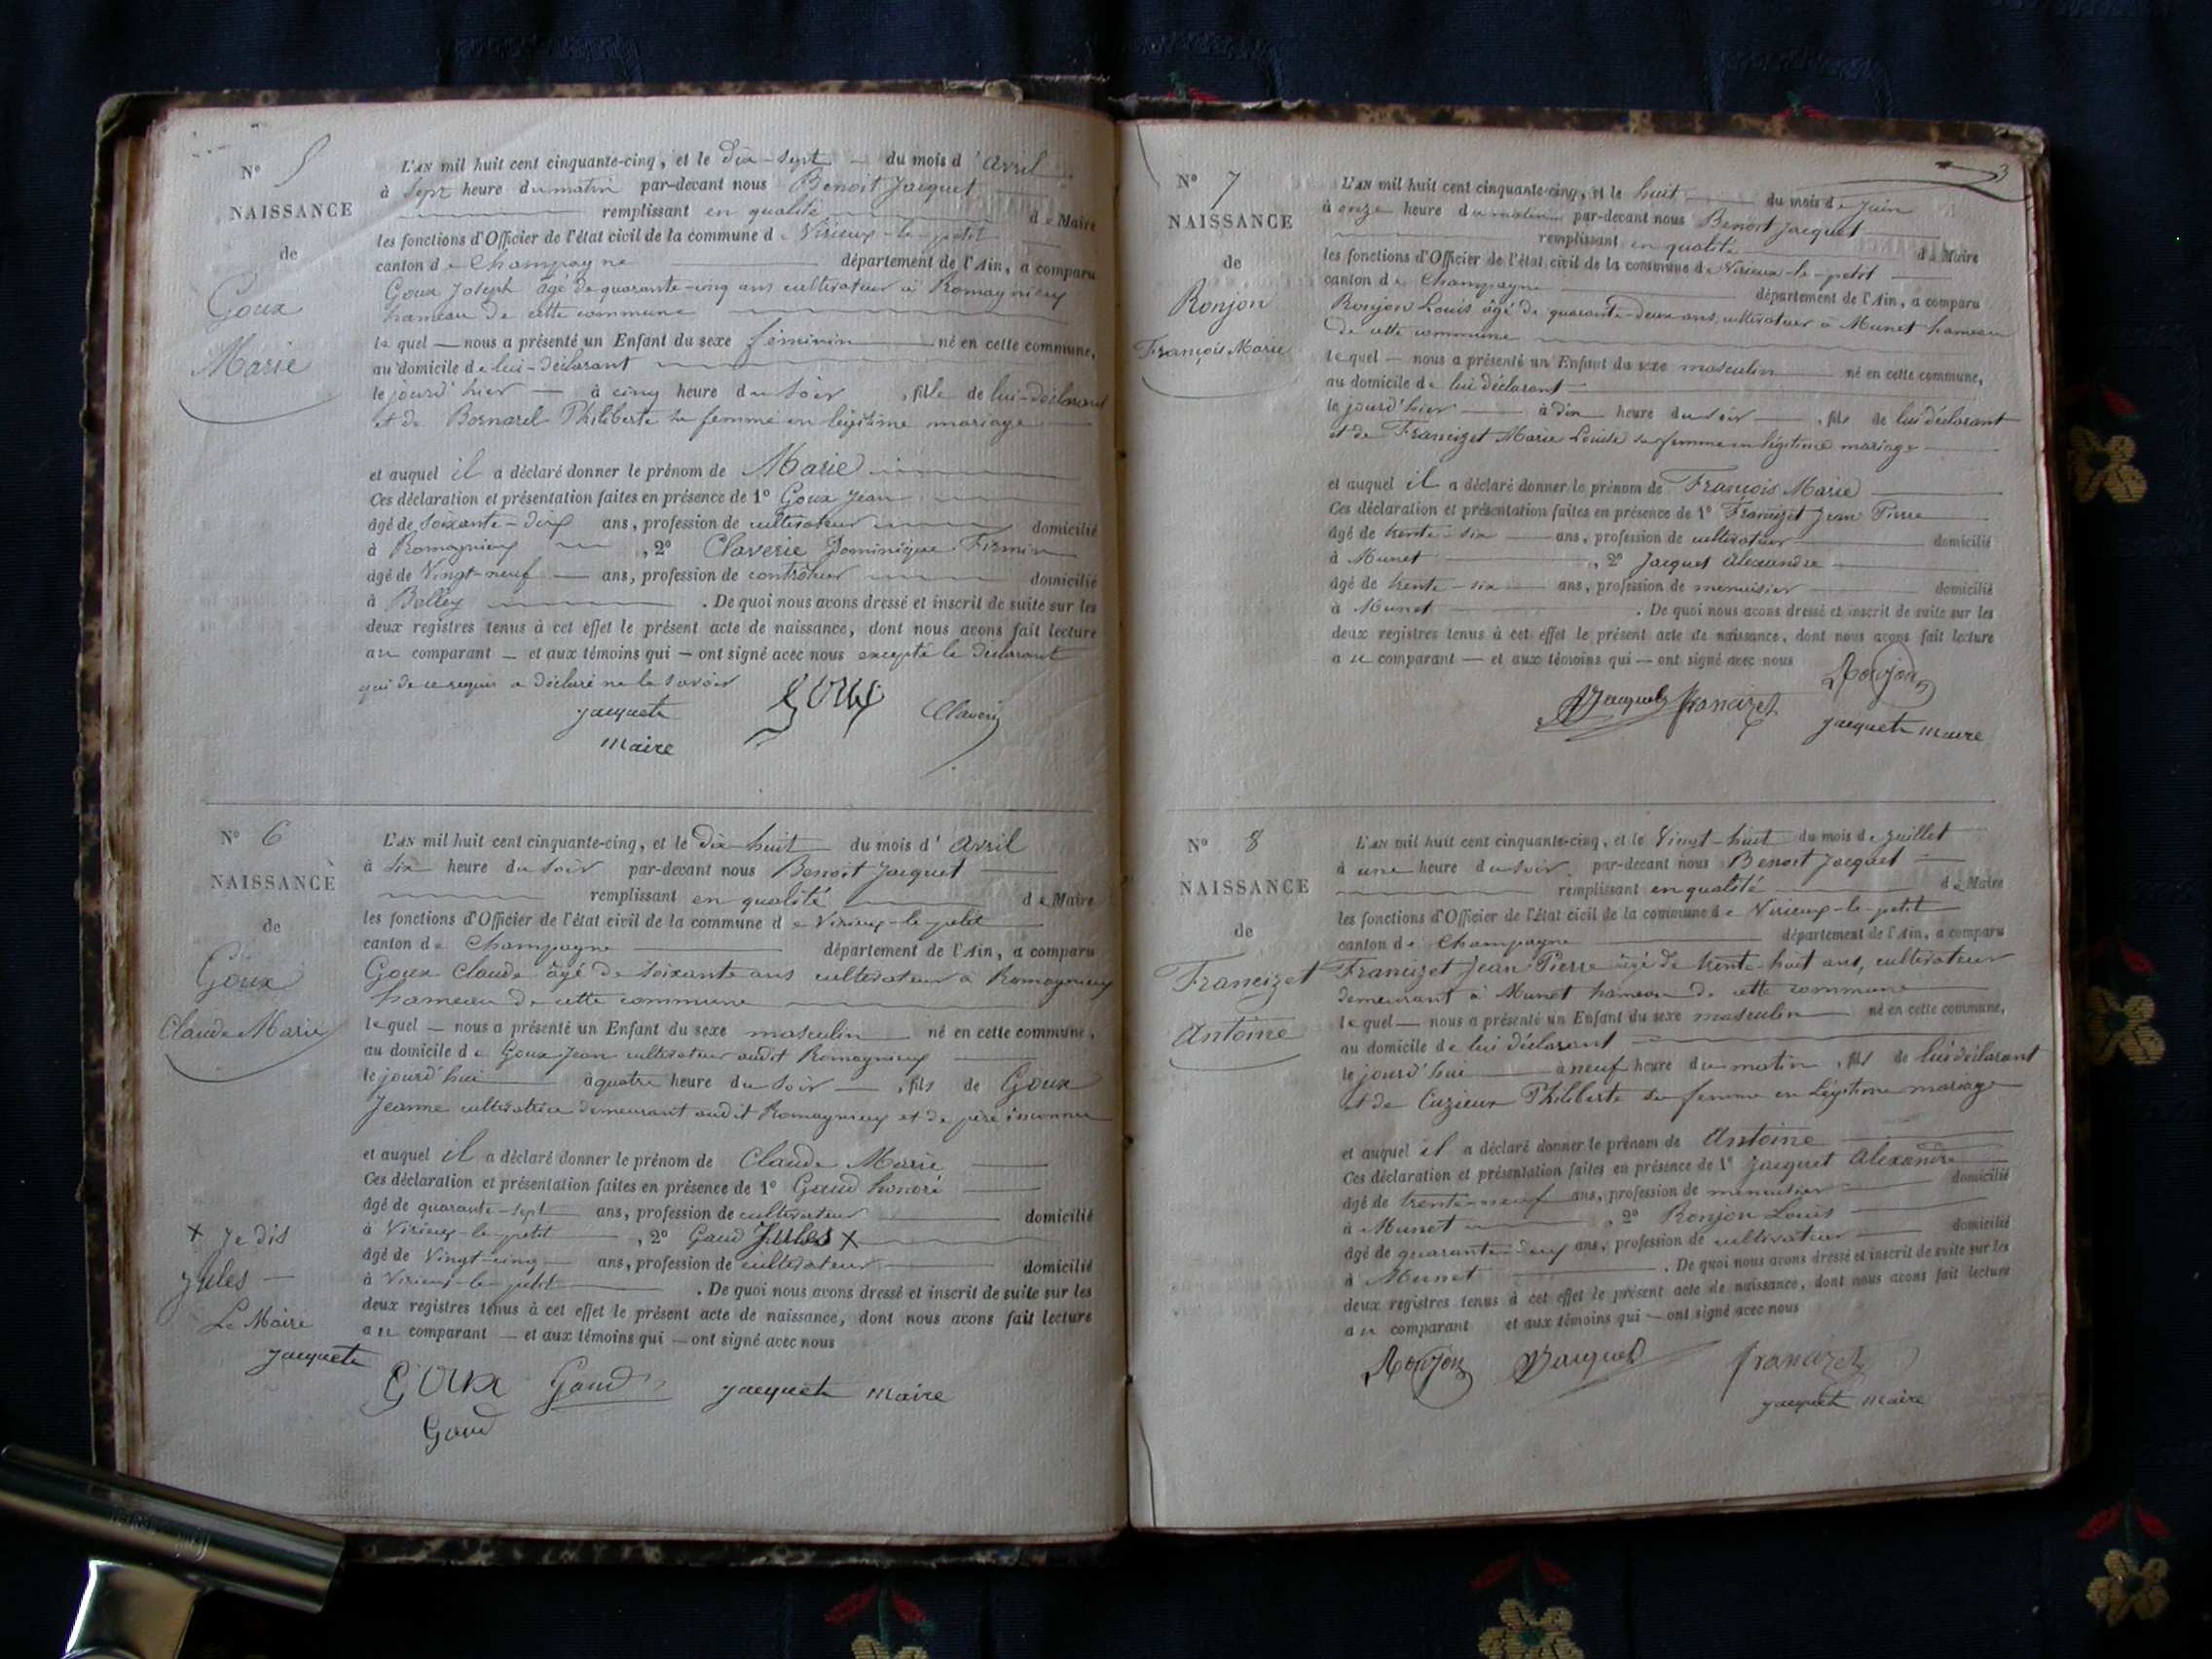 N° 5
NAISSANCE
de
Goux
Marie
L'AN mil huit cent cinquante-cinq, et le dix-sept du mois d'Avril
à Sept heure du matin par-devant nous Benoit Jacquet
remplissant en qualité de Maire
les fonctions d'Officier de l'état civil de la commune de Virieux-le-petit
canton de Champagne département de l'Ain, a comparu
Goux Joseph âgé de quarante-cinq ans cultivateur à Romagnieux
hameau de cette commune
lequel — nous a présenté un Enfant du sexe féminin né en cette commune,
au domicile de lui-déclarant
le jourd'hier — à cinq heure du soir, fille de lui-déclarant
et de Bornarel Philiberte sa femme en légitime mariage
et auquel il a déclaré donner le prénom de Marie
Ces déclaration et présentation faites en présence de 1° Goux Jean
âgé de soixante-dix ans, profession de cultivateur domicilié
à Romagnieux, 2° Claverie Dominique Firmin
âgé de Vingt-neuf — ans, profession de contrôleur domicilié
à Belley. De quoi nous avons dressé et inscrit de suite sur les
deux registres tenus à cet effet le présent acte de naissance, dont nous avons fait lecture
au comparant — et aux témoins qui — ont signé avec nous excepté le déclarant
qui de ce requis a déclaré ne le savoir
Jacquet goux Claverie
maire
N° 6
NAISSANCE
de
Goux
Claude Marie
L'AN mil huit cent cinquante-cinq, et le dix huit du mois d'Avril
à six heure du soir par-devant nous Benoit Jacquet
remplissant en qualité de Maire
les fonctions d'Officier de l'état civil de la commune de Virieux-le-petit
canton de Champagne département de l'Ain, a comparu
Goux Claude âgé de soixante ans cultivateur à Romagnieux
hameau de cette commune
lequel — nous a présenté un Enfant du sexe masculin né en cette commune,
au domicile de Goux Jean cultivateur audit Romagnieux
le jourd'hui à quatre heure du soir —, fils de Goux
Jeanne cultivatrice demeurant audit Romagnieux et de père inconnu
et auquel il a déclaré donner le prénom de Claude Marie
Ces déclaration et présentation faites en présence de 1° Gaud honoré
âgé de quarante-sept ans, profession de cultivateur domicilié
à Virieux-le-petit, 2° Gaud Jules X
âgé de Vingt-cinq ans, profession de cultivateur domicilié
à Virieux-le-petit. De quoi nous avons dressé et inscrit de suite sur les
deux registres tenus à cet effet le présent acte de naissance, dont nous avons fait lecture
au comparant — et aux témoins qui — ont signé avec nous
X Je dis
Jules —
Le Maire
Jacquet
Goux Gaud Jacquet maire
Gaud
3
N° 7
NAISSANCE
de
Ronjon
François Marie
L'AN mil huit cent cinquante-cinq, et le huit du mois de Juin
à onze heure du matin par-devant nous Benoit Jacquet
remplissant en qualité de Maire
les fonctions d'Officier de l'état civil de la commune de Virieux-le-petit
canton de Champagne département de l'Ain, a comparu
Ronjon Louis âgé de quarante-deux ans, cultivateur à Munet hameau
de cette commune
lequel — nous a présenté un Enfant du sexe masculin né en cette commune,
au domicile de lui déclarant
le jourd'hier à dix heure du soir, fils de lui déclarant
et de Francizet Marie Louise sa femme en légitime mariage
et auquel il a déclaré donner le prénom de François Marie
Ces déclaration et présentation faites en présence de 1° Francizet Jean Pierre
âgé de trente-six ans, profession de cultivateur domicilié
à Munet, 2° Jacquet Alexandre
âgé de trente-six ans, profession de menuisier domicilié
à Munet. De quoi nous avons dressé et inscrit de suite sur les
deux registres tenus à cet effet le présent acte de naissance, dont nous avons fait lecture
au comparant — et aux témoins qui — ont signé avec nous
Ronjon
AJacquet francizet
Jacquet maire
N° 8
NAISSANCE
de
Francizet
Antoine
L'AN mil huit cent cinquante-cinq, et le Vingt-huit du mois de Juillet
à une heure du soir par-devant nous Benoit Jacquet
remplissant en qualité de Maire
les fonctions d'Officier de l'état civil de la commune de Virieux-le-petit
canton de Champagne département de l'Ain, a comparu
Francizet Jean Pierre âgé de trente-huit ans, cultivateur
demeurant à Munet hameau de cette commune
lequel — nous a présenté un Enfant du sexe masculin né en cette commune,
au domicile de lui déclarant
le jourd'hui à neuf heure du matin, fils de lui déclarant
et de Cuzieux Philiberte sa femme en légitime mariage
et auquel il a déclaré donner le prénom de Antoine
Ces déclaration et présentation faites en présence de 1° Jacquet Alexandre
âgé de trente-neuf ans, profession de menuisier domicilié
à Munet, 2° Ronjon Louis
âgé de quarante-deux ans, profession de cultivateur domicilié
à Munet. De quoi nous avons dressé et inscrit de suite sur les
deux registres tenus à cet effet le présent acte de naissance, dont nous avons fait lecture
au comparant et aux témoins qui — ont signé avec nous
Ronjon AJacquet francizet
Jacquet maire